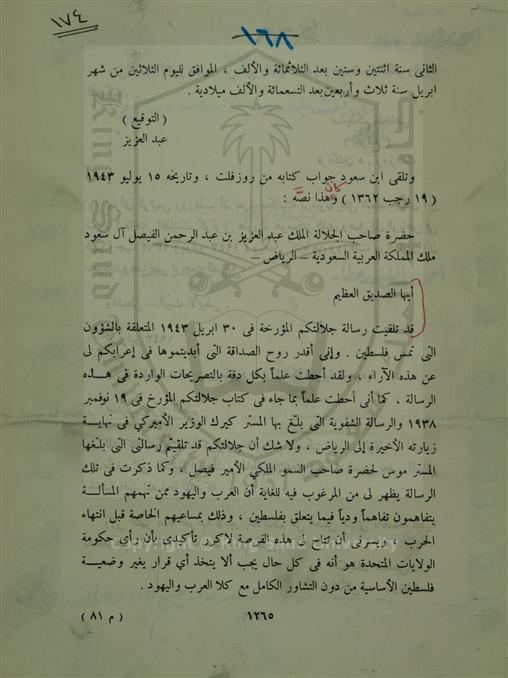 ١٧٤
١٦٨
الثانى سنة اثنتين وستين بعد الثلاثمائة والألف ، الموافق لليوم الثلاثين من شهر
ابريل سنة ثلاث وأربعين بعد التسعمائة والألف ميلادية .
( التوقيع )
عبد العزيز
وتلقى ابن سعود جواب كتابه من روزفلت ، وتاريخه ١٥ يوليو ١٩٤٣
( ١٩ رجب ١٣٦٢ ) وهذا نصّه :
حضرة صاحب الجلالة الملك عبد العزيز بن عبد الرحمن الفيصل آل سعود
ملك المملكة العربية السعودية – الرياض –
أيها الصديق العظيم
قد تلقيت رسالة جلالتكم المؤرخة فى ٣٠ ابريل ١٩٤٣ المتعلقة بالشؤون
التى تمس فلسطين . وإنى أقدر روح الصداقة التى أبديتموها فى إعرابكم لى
عن هذه الآراء ، ولقد أحطت علماً بكل دقة بالتصريحات الواردة فى هذه
الرسالة ، كما أنى أحطت علماً بما جاء فى كتاب جلالتكم المؤرخ فى ١٩ نوفمبر
١٩٣٨ والرسالة الشفوية التى بلّغ بها المستر كيرك الوزير الأميركي فى نهاية
زيارته الأخيرة إلى الرياض ، ولا شك أن جلالتكم قد تلقيتم رسالتى التى بلّغها
المستر موس لحضرة صاحب السمو الملكي الأمير فيصل ، وكما ذكرت فى تلك
الرسالة يظهر لى من المرغوب فيه للغاية أن العرب واليهود ممن تهمهم المسألة
يتفاهمون تفاهماً ودياً فيما يتعلق بفلسطين ، وذلك بمساعيهم الخاصة قبل انتهاء
الحرب ، ويسرنى أن تتاح لى هذه الفرصة لاكرر تأكيدى بأن رأي حكومة
الولايات المتحدة هو أنه فى كل حال يجب ألا يتخذ أي قرار يغير وضعية
فلسطين الأساسية من دون التشاور الكامل مع كلا العرب واليهود .
١٢٦٥
( م ٨١ )